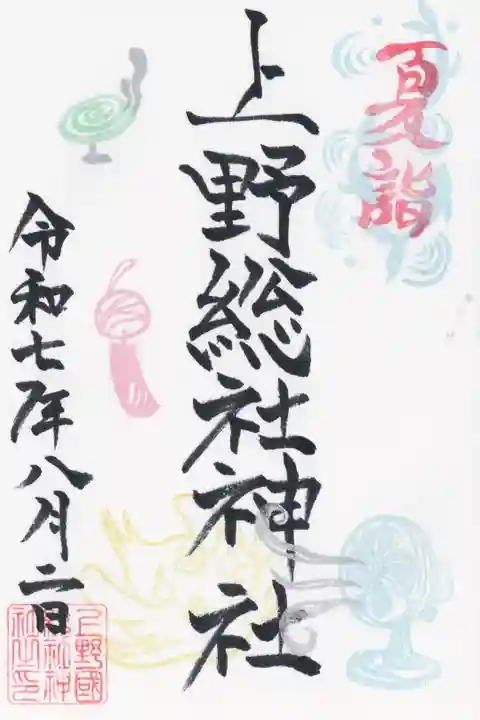 夏詣
上野総社神社
令和七年八月二日
上野國
総社神
社之印